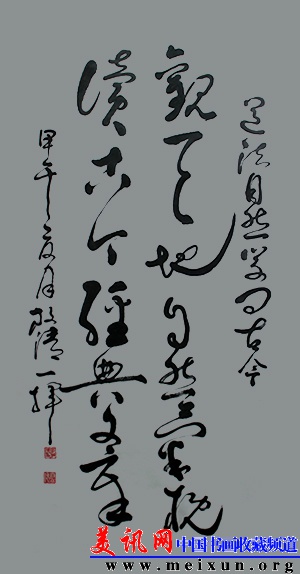 道法自然学问古今
觀天地自然
讀古今經典文章
甲午夏月一輝
美讯网 中国书画收藏频道
www.meixun.org